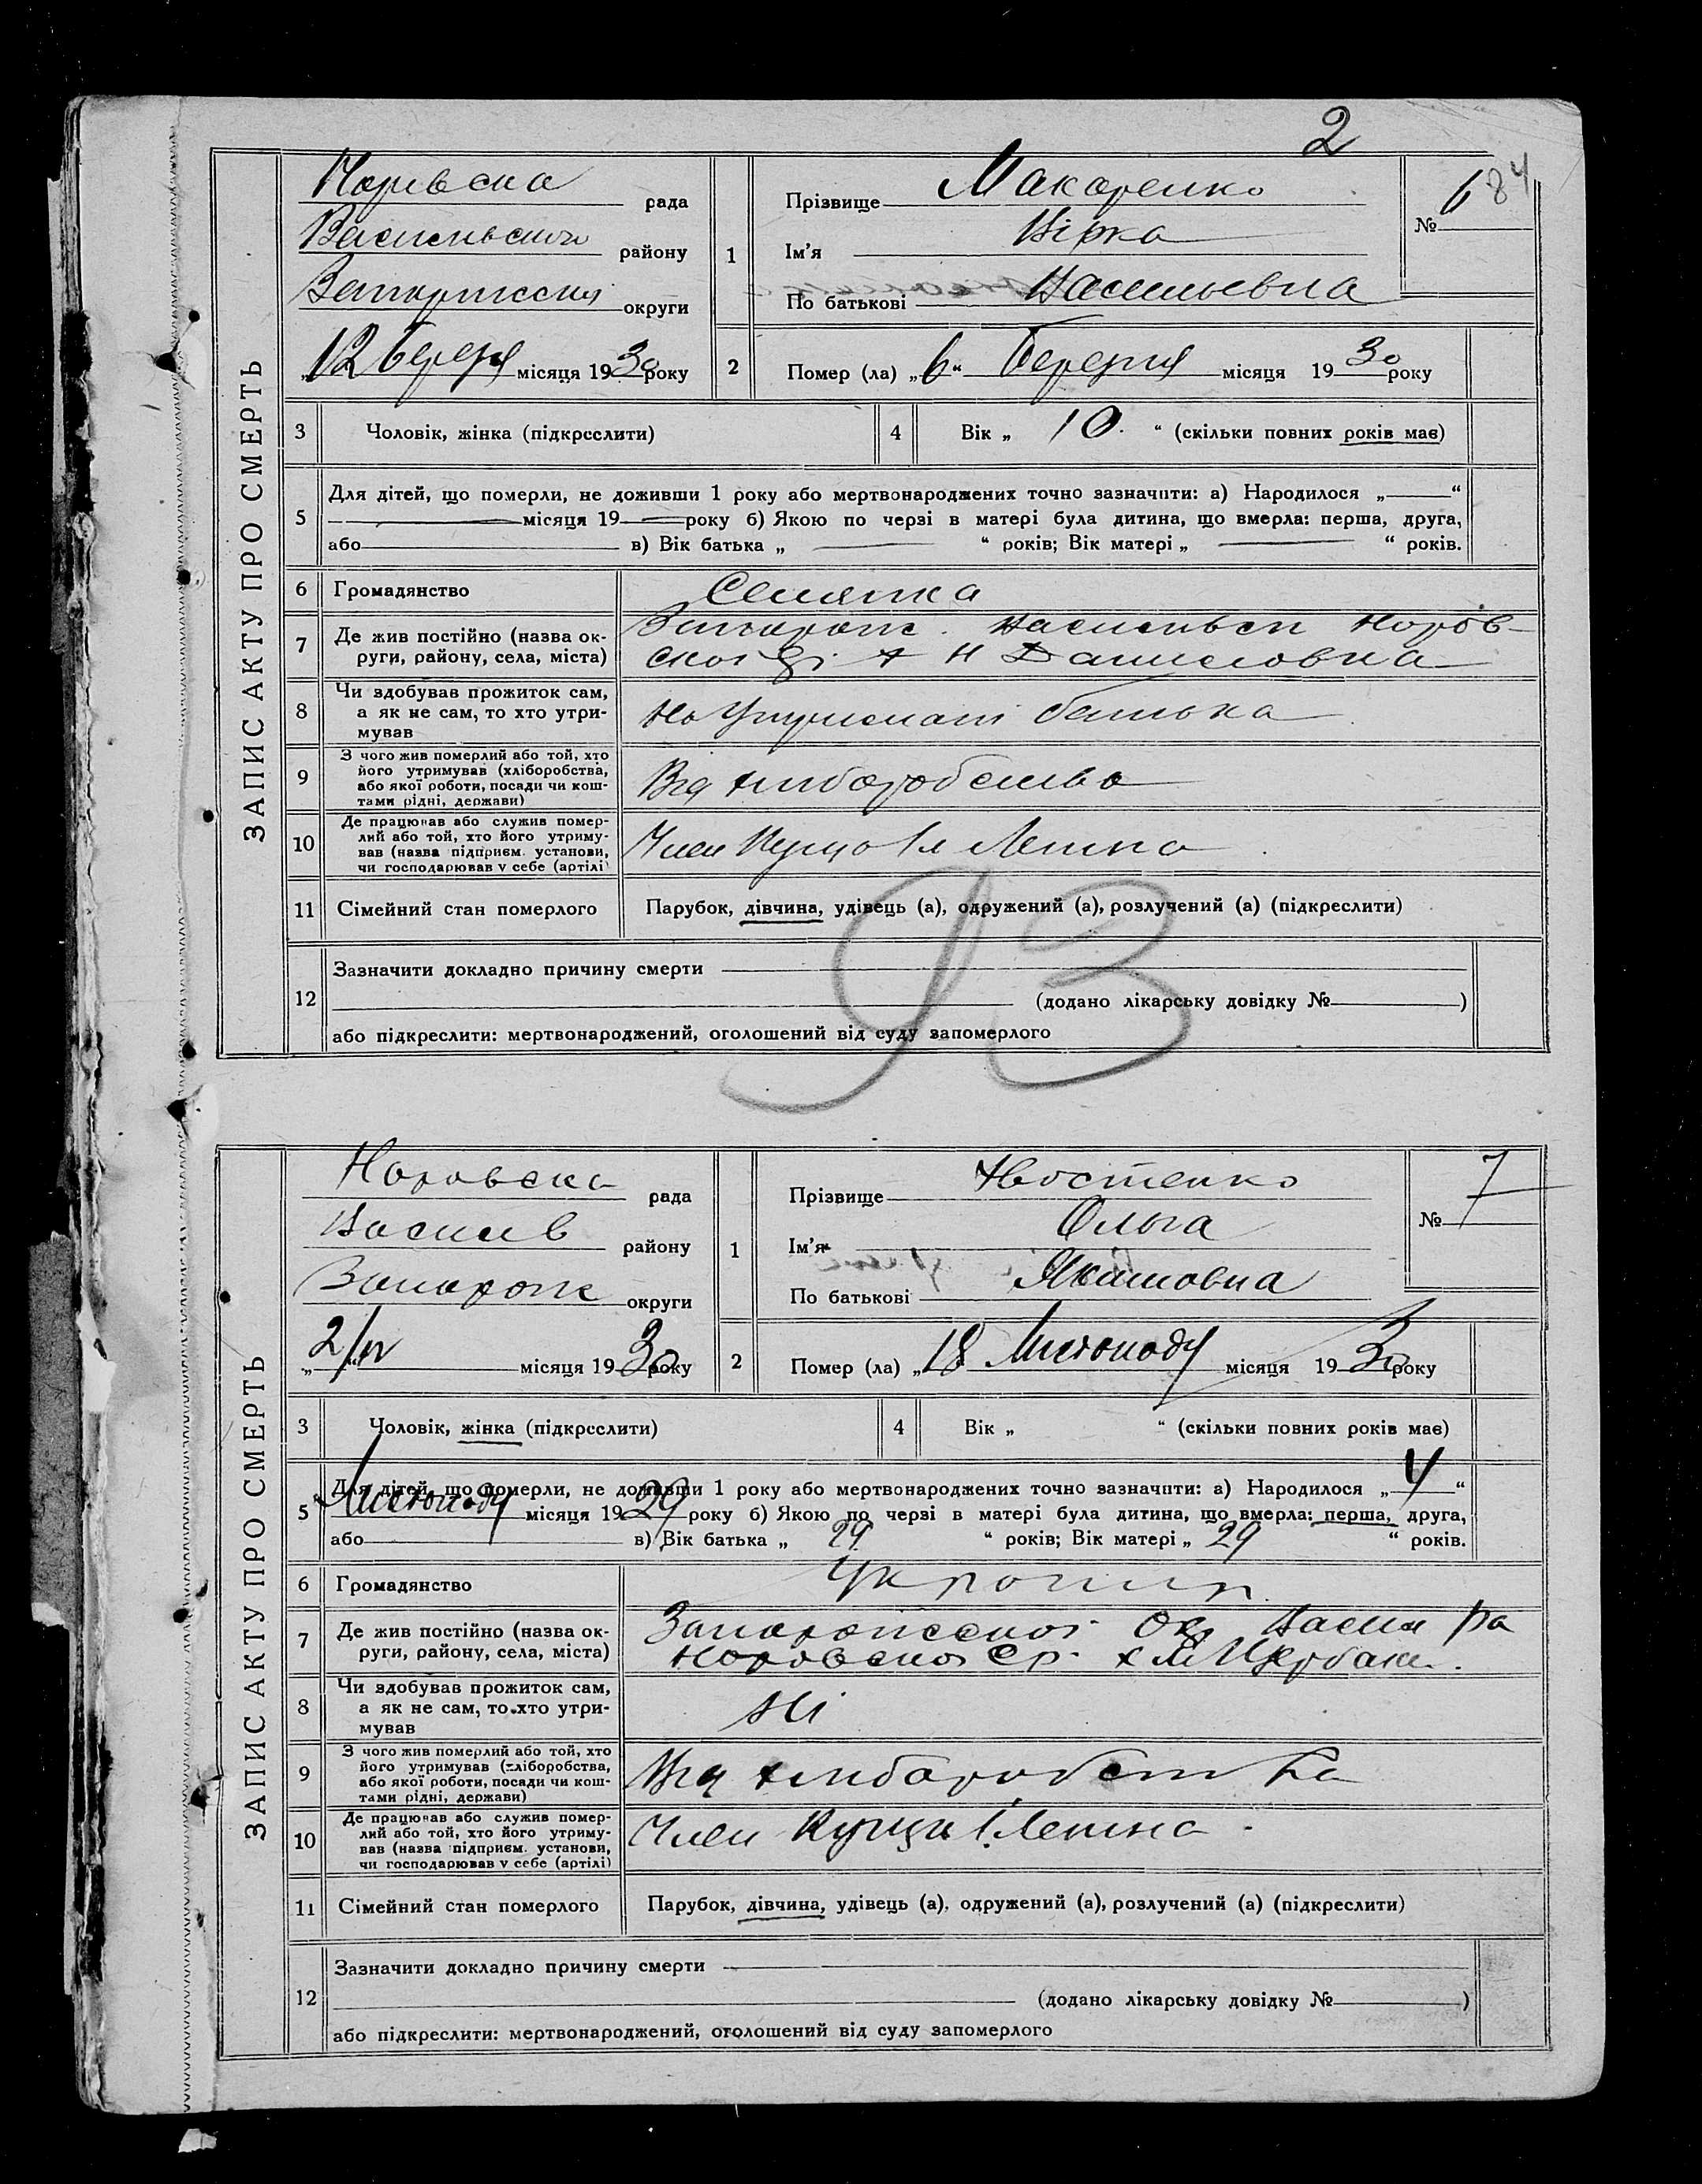 2
ЗАПИС АКТУ ПРО СМЕРТЬ
рада
району
округи
12 березня місяця 1930 року
1
Прізвище Макаренко
Ім'я Вірка
По батькові Васильевна
№ 6
84
2 Помер (ла) „6“ березня місяця 1930 року
3 Чоловік, жінка (підкреслити)
4 Вік „ 10. “ (скільки повних років має)
5 Для дітей, що померли, не доживши 1 року або мертвонароджених точно зазначити: а) Народилося „ “
місяця 19 року б) Якою по черзі в матері була дитина, що вмерла: перша, друга,
або в) Вік батька „ “ років; Вік матері „ “ років.
6 Громадянство Селянка
7 Де жив постійно (назва округи, району, села, міста)
Запорож. Васильвск
Даниловка
8 Чи здобував прожиток сам, а як не сам, то хто утримував
На утримані батька
9 З чого жив померлий або той, хто його утримував (хліборобства, або якої роботи, посади чи коштами рідні, держави)
Від хліборобства
10 Де працював або служив померлий або той, хто його утримував (назва підприєм. установи, чи господарював у себе (артілі)
Член Леніна
11 Сімейний стан померлого Парубок, дівчина, удівець (а), одружений (а), розлучений (а) (підкреслити)
12 Зазначити докладно причину смерти
(додано лікарську довідку № )
або підкреслити: мертвонароджений, оголошений від суду запомерлого
93
ЗАПИС АКТУ ПРО СМЕРТЬ
рада
Васил в району
Запорож округи
місяця 1930 року
1
Прізвище
Ім'я Ольга
По батькові Якимовна
№ 7
2 Помер (ла) „18 Листопаду місяця 1930 року
3 Чоловік, жінка (підкреслити)
4 Вік „ “ (скільки повних років має)
5 Для дітей, що померли, не доживши 1 року або мертвонароджених точно зазначити: а) Народилося „4“
Листопаду місяця 1929 року б) Якою по черзі в матері була дитина, що вмерла: перша, друга,
або в) Вік батька „ 29 “ років; Вік матері „ 29 “ років.
6 Громадянство
7 Де жив постійно (назва округи, району, села, міста)
Запорожской Окр Васил ра
Щербаки.
8 Чи здобував прожиток сам, а як не сам, то хто утримував
Ні
9 З чого жив померлий або той, хто його утримував (хліборобства, або якої роботи, посади чи коштами рідні, держави)
Від хліборобства
10 Де працював або служив померлий або той, хто його утримував (назва підприєм. установи, чи господарював у себе (артілі)
Член Леніна
11 Сімейний стан померлого Парубок, дівчина, удівець (а), одружений (а), розлучений (а) (підкреслити)
12 Зазначити докладно причину смерти
(додано лікарську довідку № )
або підкреслити: мертвонароджений, оголошений від суду запомерлого